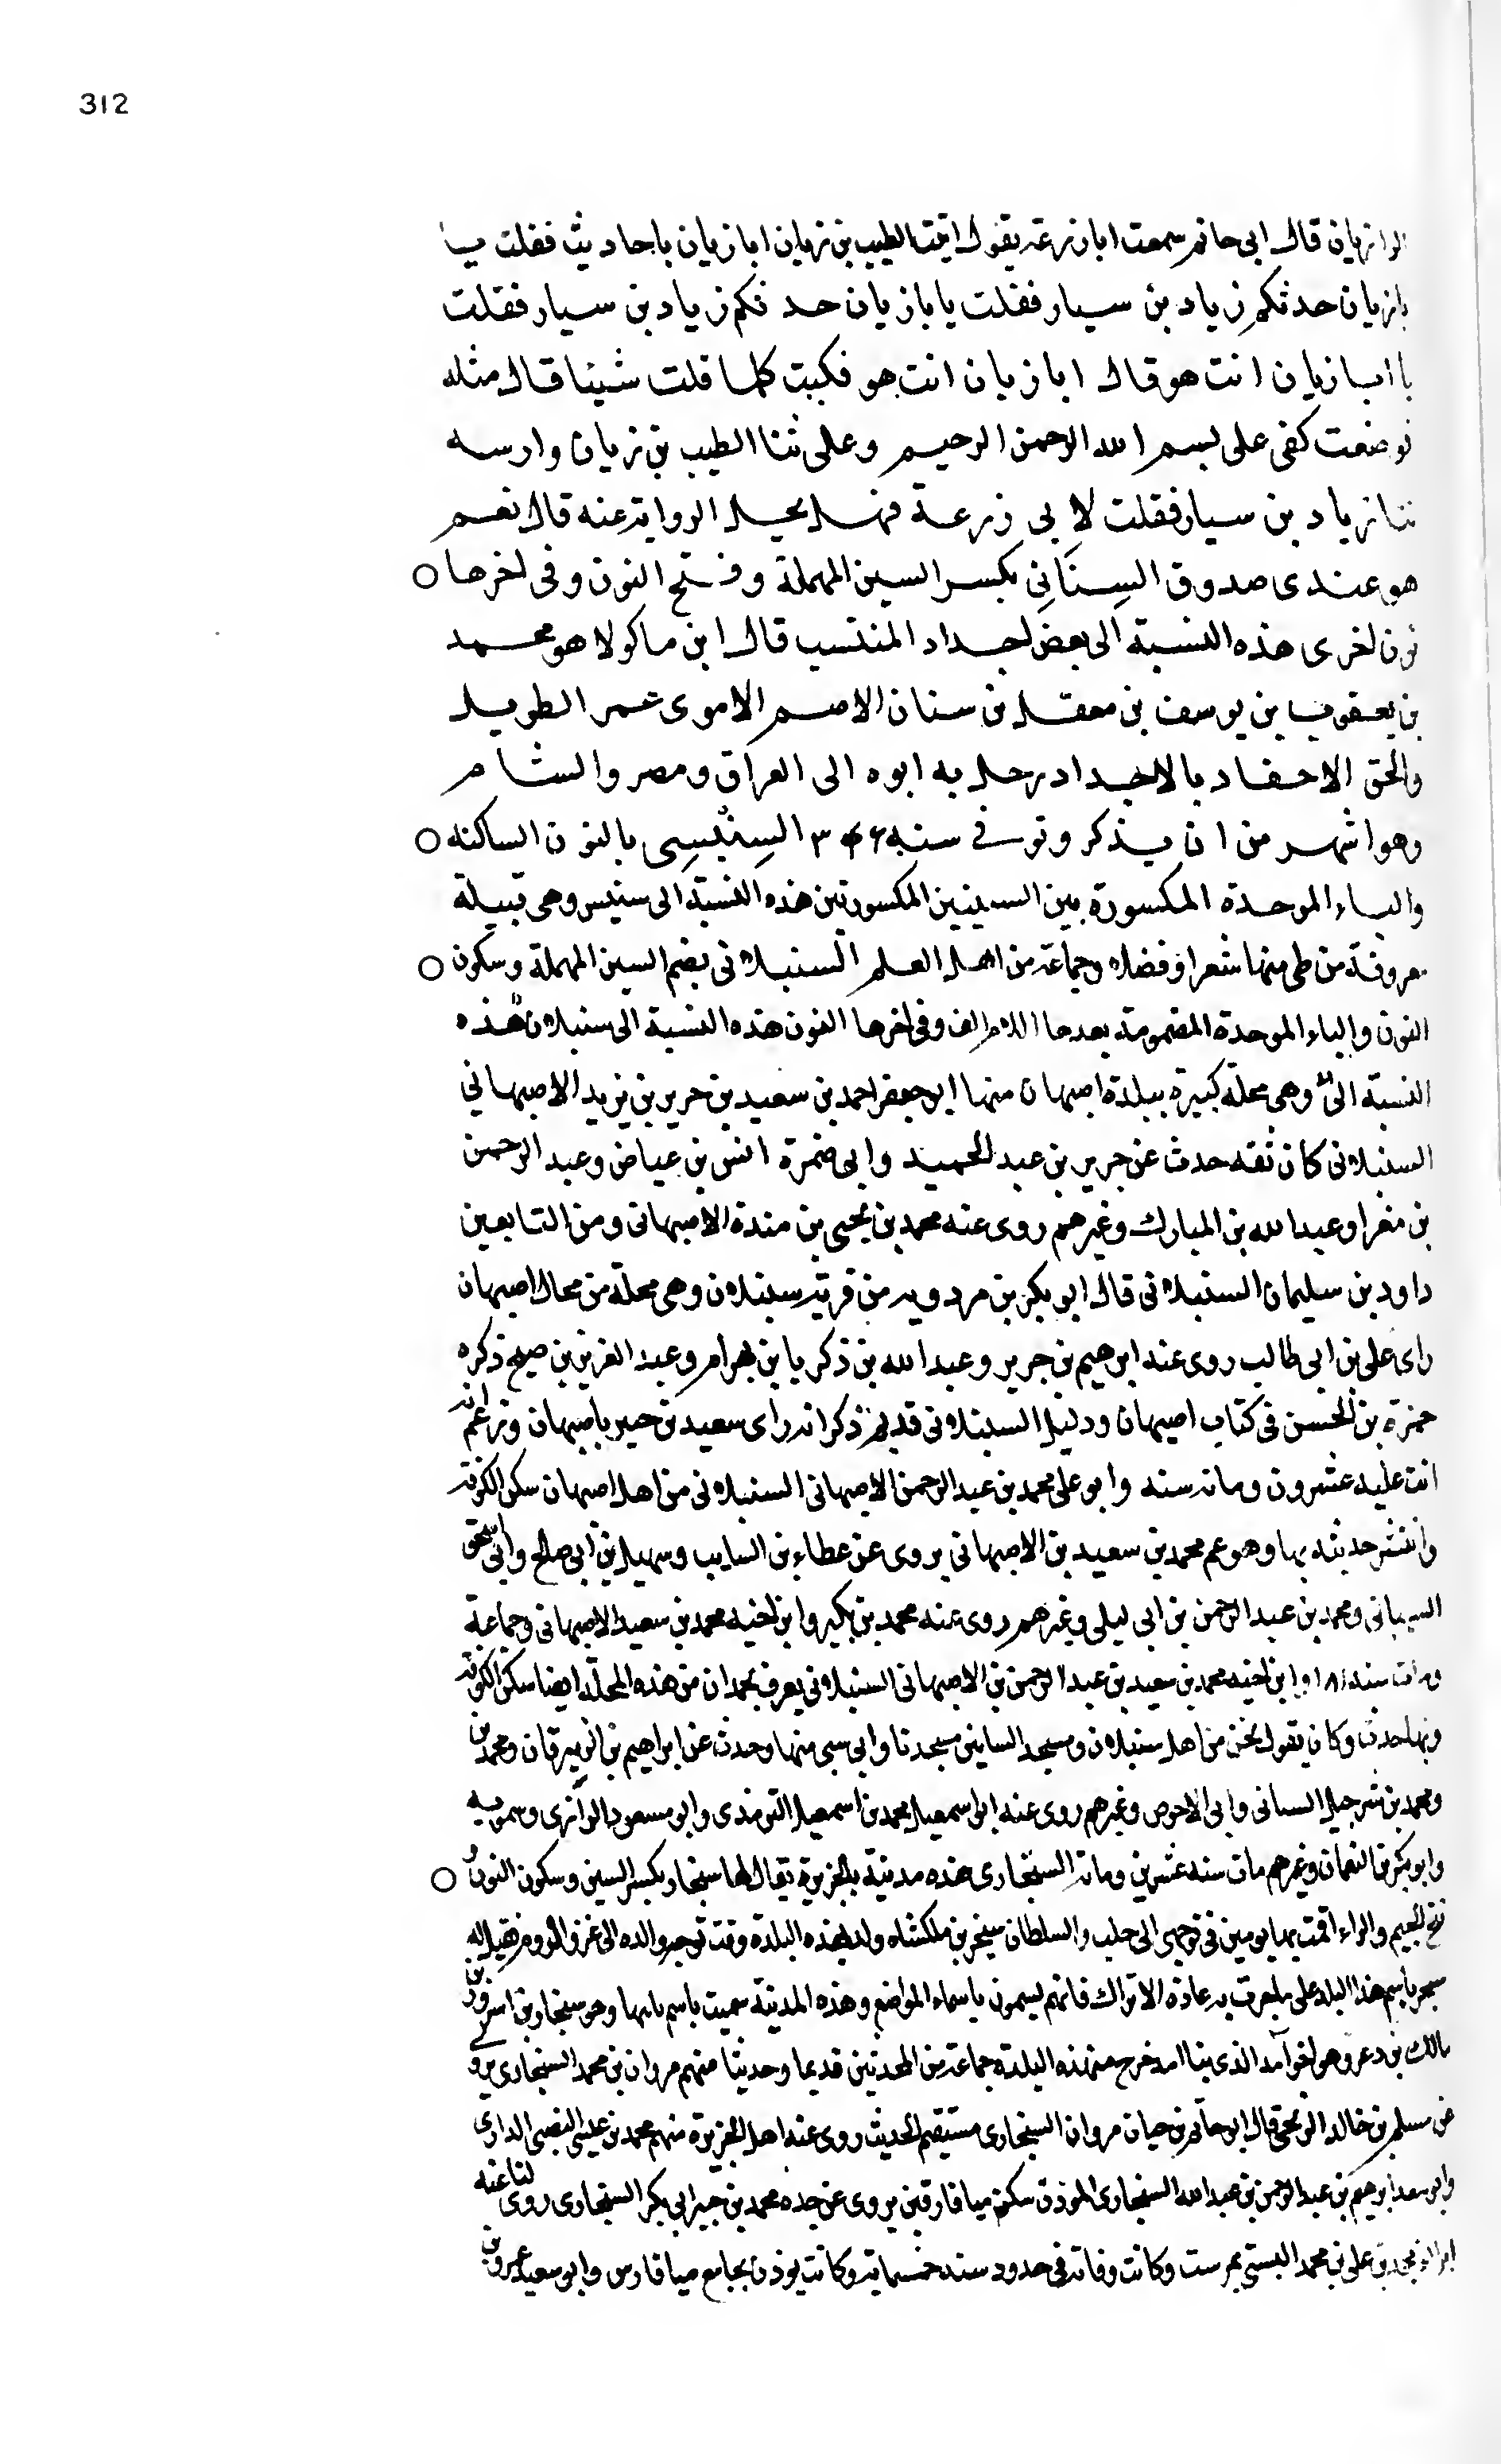 312
زيان قال ابى حاتم سمعت ابا زرعة يقول اتيت الطيب بن زيان ابا زيان باحاديث فقلت يا
با زيان حدثكم زياد بن سيار فقلت يا با زيان حد ثكم زياد بن سيار فقلت
يا ابا زيان انت هو قال ابا زيان انت هو فكبت كلما قلت شيئا قال مثله
فوضعت كفى على بسم الله الرحمن الرحيم وعلى ثنا الطيب بن زيان وارسه
ثنا زياد بن سيار فقلت لابى زرعة فهل يحل الرواية عنه قال نعم
هو عندى صدوق السِنَانِى بكسر السين المهملة وفتح النون وفى اخرها ○
نون اخرى هذه النسبة الى بعض اجداد المنتسب قال ابن ماكولا هو محمد
بن يعقوب بن يوسف بن معقل بن سنان الاصم الاموى عمر الطويل
والحق الاحفاد بالاجداد رحل به ابوه الى العراق ومصر والشام
وهو اشهر من ان يذكر وتوفى سنة ٣٤٦ السِنْبِسِى بالنون الساكنه ○
والباء الموحدة المكسورة بين السينين المكسورتين هذه النسبة الى سنبس وهى قبيلة
معروفة من طى منها شعرا وفضلاء وجماعة من اهل العلم السنبلانى بضم السين المهملة وسكون ○
النون والباء الموحدة المضمومة بعدها اللام الف وفى اخرها النون هذه النسبة الى سنبلان هذه
النسبة الى وهى محلة كبيرة ببلدة اصبهان منها ابو جعفر احمد بن سعيد بن جرير بن يزيد الاصبهانى
السنبلانى كان ثقه حدث عن جرير بن عبد الحميد وابى ضمرة انس بن عياض وعبد الرحمن
بن مغرا وعبد الله بن المبارك وغيرهم روى عنه محمد بن يحيى بن مندة الاصبهانى ومن التابعين
داود بن سليمان السنبلانى قال ابو بكر بن مردويه من قرية سنبلان وهى محلة من محال اصبهان
راى على بن ابى طالب روى عنه ابرهيم بن جرير وعبد الله بن ذكريا بن بهرام وعبد العزيز بن صبيح ذكره
حمزة بن الحسن فى كتاب اصبهان ودليل السنبلانى قديم ذكر انه راى سعيد بن جبير باصبهان وزعم انه
اتت عليه عشرون ومائة سنه وابو على محمد بن عبد الرحمن الاصبهانى السنبلانى من اهل اصبهان سكن الكوفة
وانتشر حديثه بها وهو عم محمد بن سعيد بن الاصبهانى يروى عن عطاء بن السايب وسهيل بن ابى صالح وابى اسحق
ومحمد بن عبد الرحمن بن ابى ليلى وغيرهم روى عنه محمد بن بكير وابن اخيه محمد بن سعيد الاصبهانى وجماعة
ومات سنة ١٨١ وابن اخيه محمد بن سعيد بن عبد الرحمن بن الاصبهانى السنبلانى يعرف بحمدان من هذه المحلة ايضا سكن الكوفة
وبها حدث وكان يقول نحن من اهل سنبلان ومسجد مسجدنا وابى سبى منها وحدث عن ابراهيم بن الزبرقان ومحمد بن
ومحمد بن شرحبيل وابى الاحوص وغيرهم روى عنه ابو اسمعيل محمد بن اسمعيل الترمذى وابو مسعود الرازى وسمويه
وابو بكر بن النعمان وغيرهم مات سنه عشرين ومائة السنجارى هذه مدينة بالجزيرة يقال لها سنجار بكسر السين وسكون النون و ○
فتح الجيم والراء اقمت بها يومين فى توجهى الى حلب والسلطان سنجر بن ملكشاه ولد بهذه البلدة وقت توجه والده الى غزو الروم فقيل له
سنجر باسم هذا البلد على عادة الاتراك فانهم يسمون باسماء المواضع وهذه المدينة سميت باسم بانيها وهو سنجار بن
مالك بن دعر وهو اخو آمد الذى بنا امد خرج من هذه البلدة جماعة من المحدثين قديما وحديثا منهم مروان بن محمد السنجارى يروى
عن مسلم بن خالد الزنجى قال ابو حاتم بن حيان مروان السنجارى مستقيم الحديث روى عنه اهل الجزيرة منهم محمد بن عيسى
وابو سعد ابرهيم بن عبد الرحمن بن عبد الله السنجارى المؤذن سكن ميافارقين يروى عن جده محمد بن ابى بكر السنجارى روى لنا عنه
محمد بن على بن محمد البستى وكانت وفاته فى حدود سنه خمسماية وكانت يوذن بجامع ميافارقين وابو سعيد